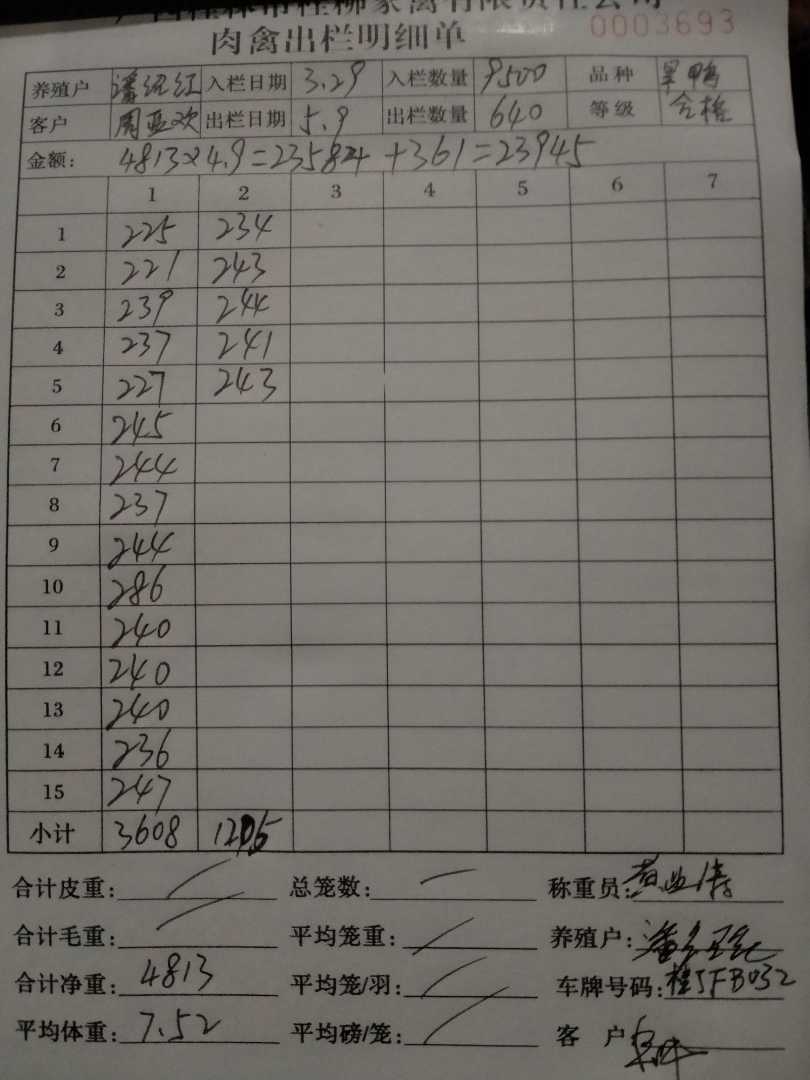 广西桂林市桂柳家禽有限责任公司
肉禽出栏明细单 0003693
养殖户 潘绍红 入栏日期 3.29 入栏数量 9500 品种
客户 周亚欢 出栏日期 5.9 出栏数量 640 等级 合格
金额: 4813×4.9=23584+361=23945
1 2 3 4 5 6 7
1 225 234
2 221 243
3 239 244
4 237 241
5 227 243
6 245
7 244
8 237
9 244
10 286
11 240
12 240
13 240
14 236
15 247
小计 3608 1205
合计皮重: 总笼数: 称重员:
合计毛重: 平均笼重: 养殖户:
合计净重: 4813 平均笼/羽: 车牌号码: 桂JFB032
平均体重: 7.52 平均磅/笼: 客 户